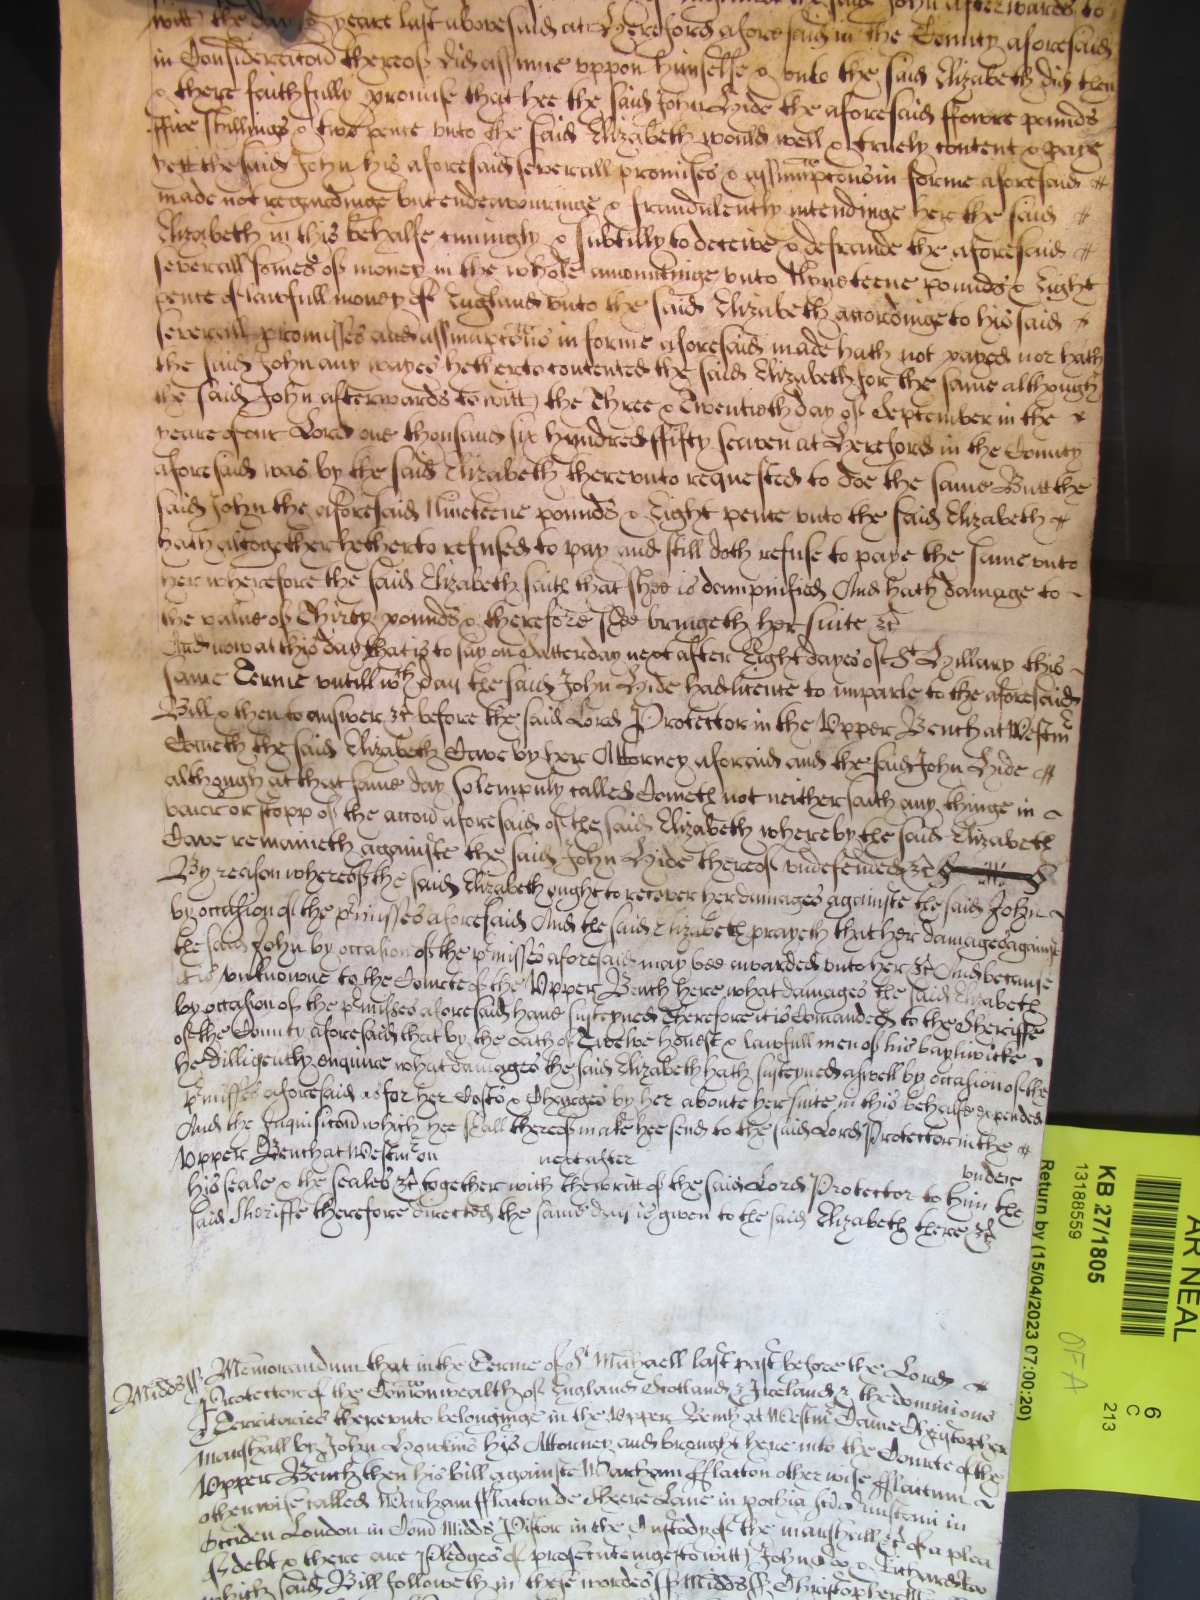 said John afterwards to
witt the day & yeare last abovesaid att Hereford aforesaid in the County aforesaid
in Consideracon thereof did assume uppon himselfe & unto the said Elizabeth did then
& there faithfully promise that hee the said John Hide the aforesaid ffowre pounds
ffive shillings & two pence unto the said Elizabeth would well & truely content & paye
yett the said John his aforesaid severall promises & assumptons in forme aforesaid
made not regardinge but endeavouringe & fraudulently intendinge her the said
Elizabeth in this behalfe cuningly & subtilly to deceive & defraude the aforesaid
severall somes of money in the whole amountinge unto Nyneteene pounds & Eight
pence of lawfull money of England unto the said Elizabeth accordinge to his said
severall promisses and assumptons in forme aforesaid made hath not payed nor hath
the said John any wayes hetherto contented the said Elizabeth for the same although
the said John afterwards to witt the Three & Twentieth day of September in the
yeare of our Lord one thousand six hundred ffifty seaven at Hereford in the County
aforesaid was by the said Elizabeth thereunto requested to doe the same Butt the
said John the aforesaid Nineteene pounds & Eight pence unto the said Elizabeth
hath altogether hetherto refused to pay and still doth refuse to paye the same unto
her wherefore the said Elizabeth saith that shee is dampnified And hath damage to
the value of Thirty pounds & therefore shee bringeth her suite &c
And now at this day that is to say on Satterday next after Eight dayes of St Hillary this
same Terme untill wch day the said John Hide had licence to imparle to the aforesaid
Bill & then to answer &c before the said Lord Protector in the Upper Bench at Westmr
Cometh the said Elizabeth Cave by her Attorney aforaid and the said John Hide
although at that same day solempnly called Cometh not neither saith any thinge in
barr or stopp of the accon aforesaid of the said Elizabeth whereby the said Elizabeth
Cave remaineth againste the said John Hide thereof undefended &c
By reason whereof the said Elizabeth ought to recover her damages againste the said John
by occasion of the pmisses aforesaid And the said Elizabeth prayeth that her damages against
the said John by occasion of the pmisses aforesaid may bee awarded unto her &c And because
it is unknowne to the Courte of the Upper Bench here what damages the said Elizabeth
by occasion of the pmisses aforesaid hath susteyned Therefore it is Comanded to the Sheriffe
of the County aforesaid that by the oath of Twelve honest & lawfull men of his baylwicke
he dilligently enquire what damages the said Elizabeth hath susteyned aswell by occasion of the
pmisses aforesaid as for her Costs & Charges by her aboute her suite in this behalfe expended
And the Inquisicon which hee shall thereof make hee send to the said Lord Protector in the
Upper Bench at Westmr on next after under
his seale & the seales &c together with the writt of the said Lord Protector to him the
said Sheriffe therefore directed the same day is given to the said Elizabeth there &c
Midds ss Memorandum that in the Terme of St Michaell last past before the Lord
Protector of the Comonwealth of England Scotland & Ireland & the dominions
& Territories thereunto belonginge in the Upper Bench at Westmr Came Christopher
Marshall by John Hookins his Attorney and brought here into the Courte of the
Upper Bench then his bill againste Warham fflatton otherwise fflattum
otherwise called Warham fflatton de Sheere Lane in pochia sci Dunstani in
Occiden London in Com Midds Pistor in the Custody of the marshall &c of a plea
of debt & there are Pledges of prosecuteinge to witt John Doo & Richard Roo
which said Bill followeth in these wordes ss Midds ss Christopher
AR NEAL
6
C
213
KB 27/1805
13188559
Return by (15/04/2023 07:00:20)
OFA